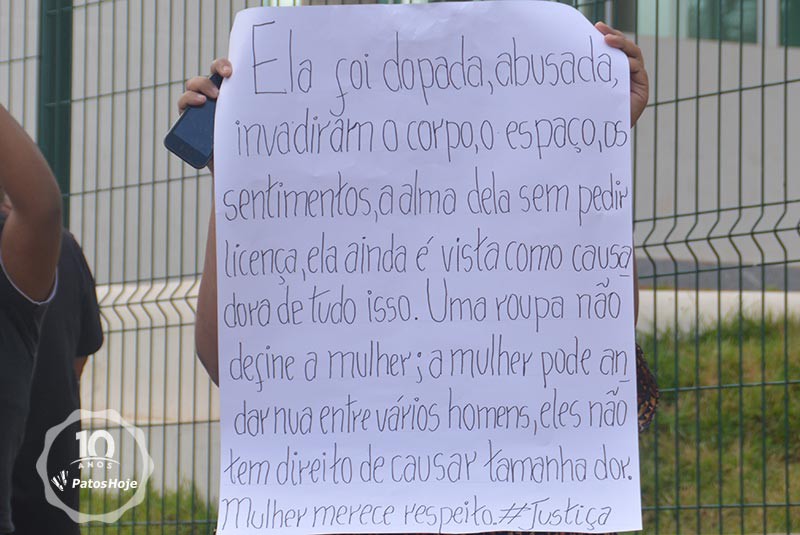 Ela foi dopada, abusada,
invadiram o corpo, o espaço, os
sentimentos, a alma dela sem pedir
licença, ela ainda é vista como causa
dora de tudo isso. Uma roupa não
define a mulher; a mulher pode an
dar nua entre vários homens, eles não
tem direito de causar tamanha dor.
Mulher merece respeito. #Justiça
10
ANOS
PatosHoje